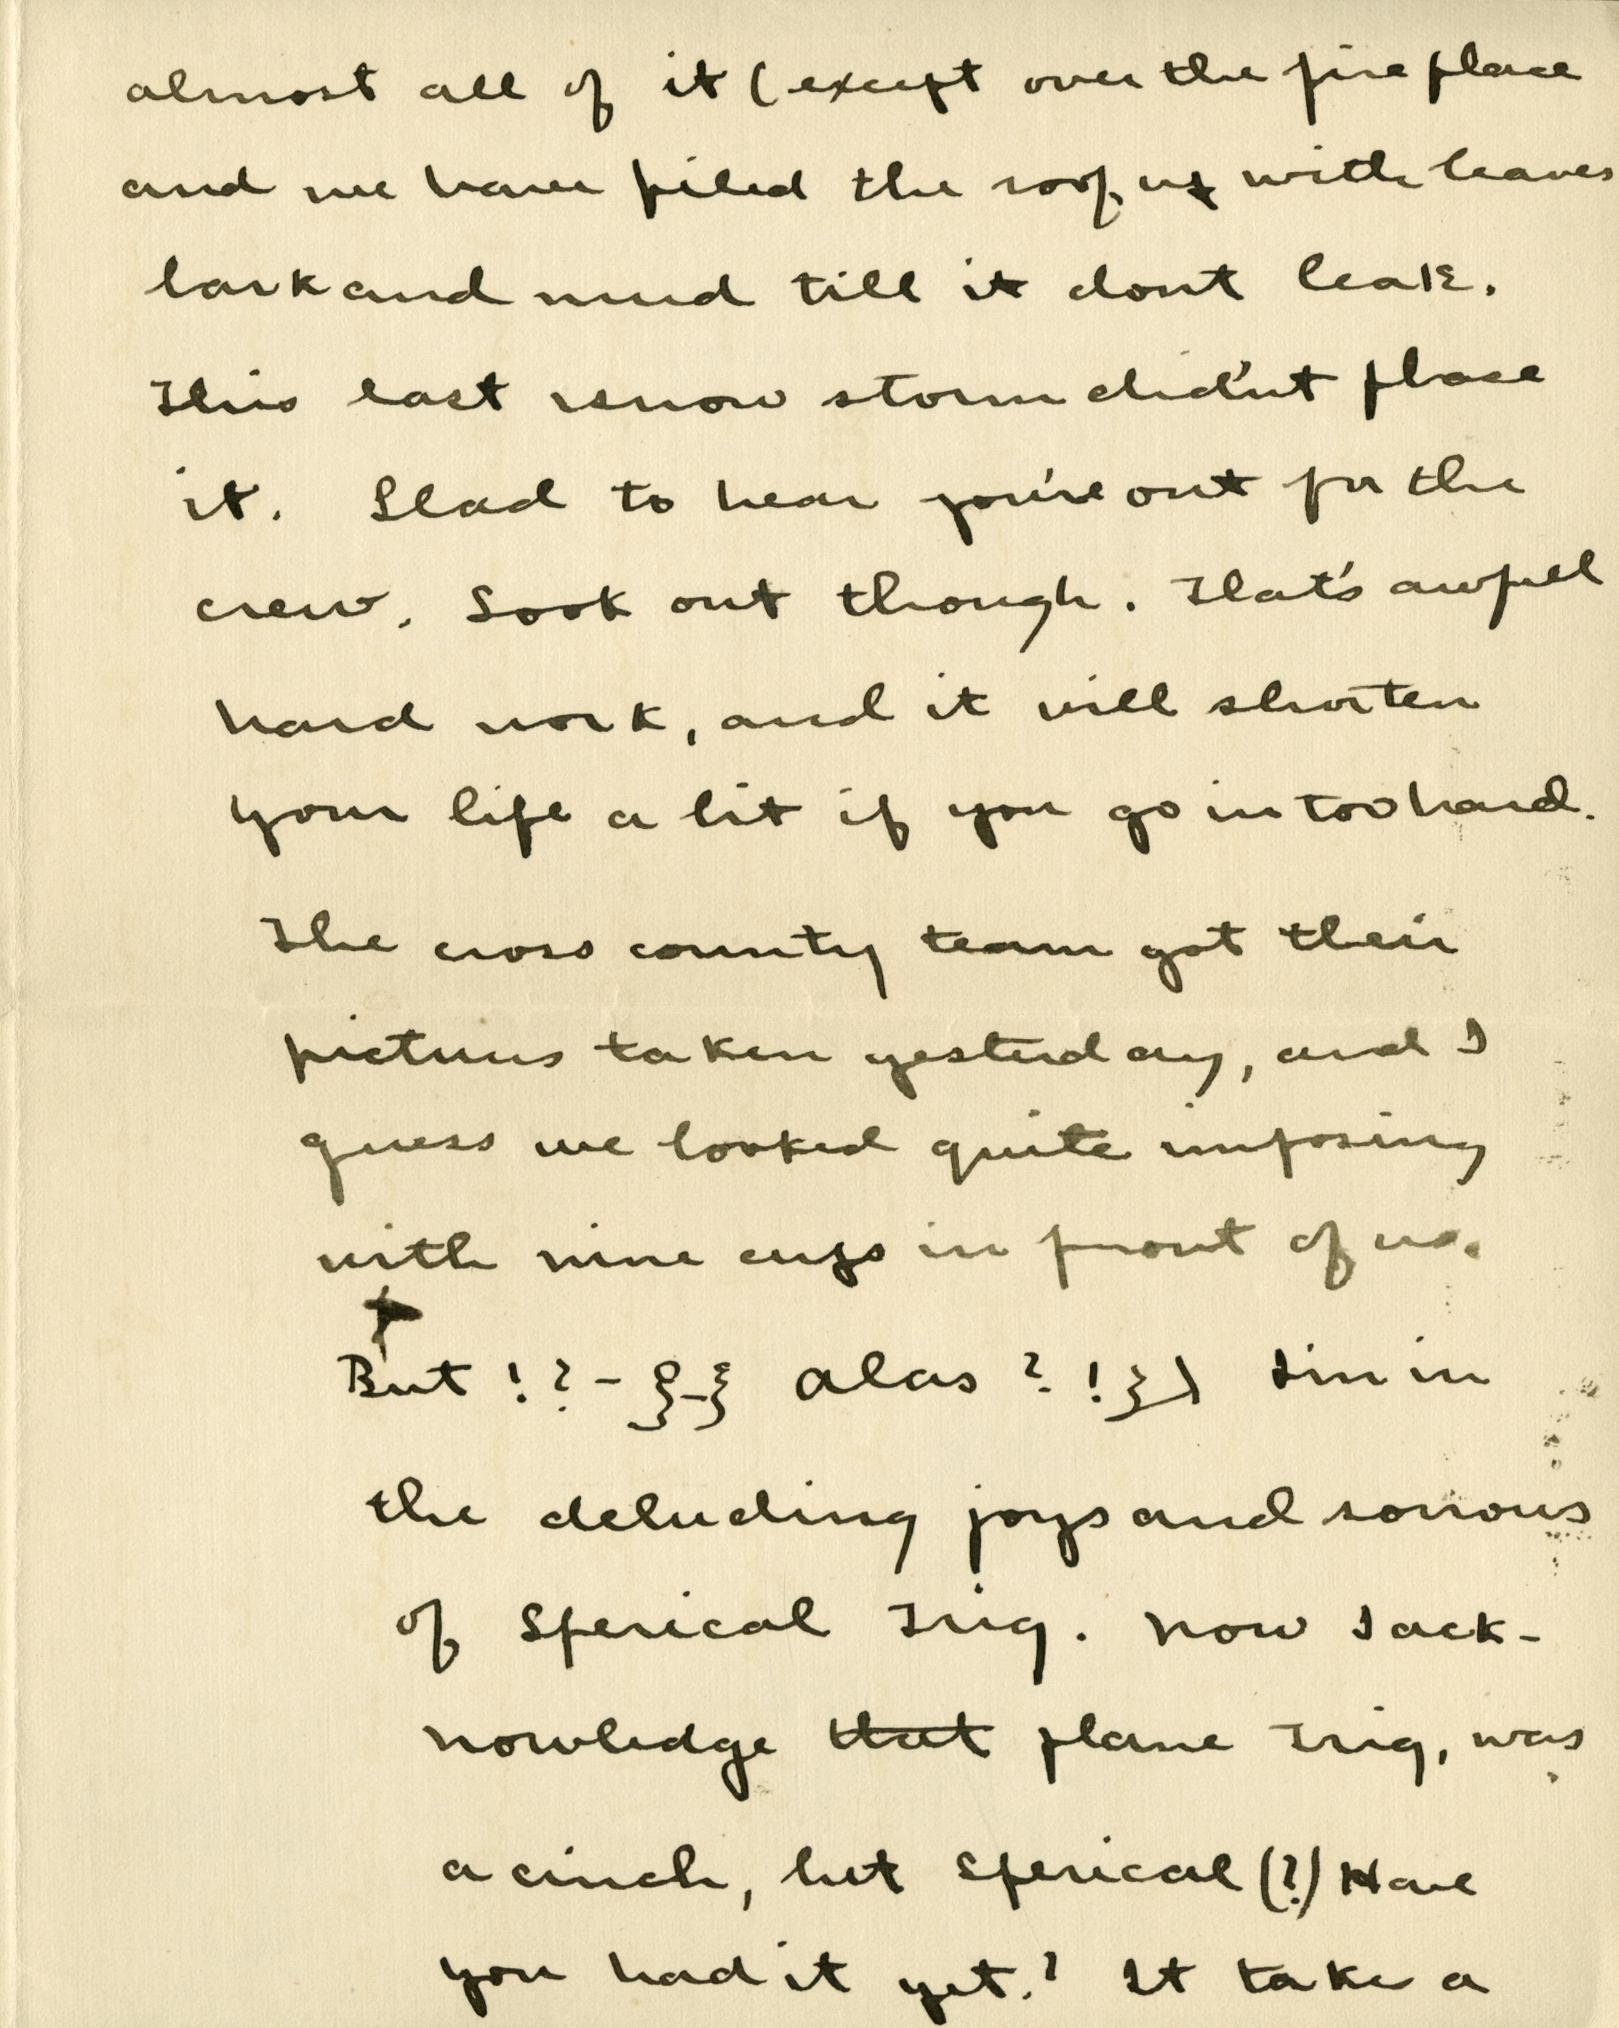 almost all of it (except over the fireplace
and we have piled the roof up with leaves
bark and mud till it dont leak.
This last snow storm did'nt phase
it. Glad to hear you're out for the
crew. Look out though. That's awful
hard work, and it will shorten
your life a bit if you go in too hard.
The cross county team got their
pictures taken yesterday, and I
guess we looked quite imposing
with nine cups in front of us.
But !?- }-} alas ?!}) I'm in
the deluding joys and sorrows
of Sperical Trig. Now I ack-
nowledge that plane Trig, was
a cinch, but sperical (?) Have
you had it yet.? It take a